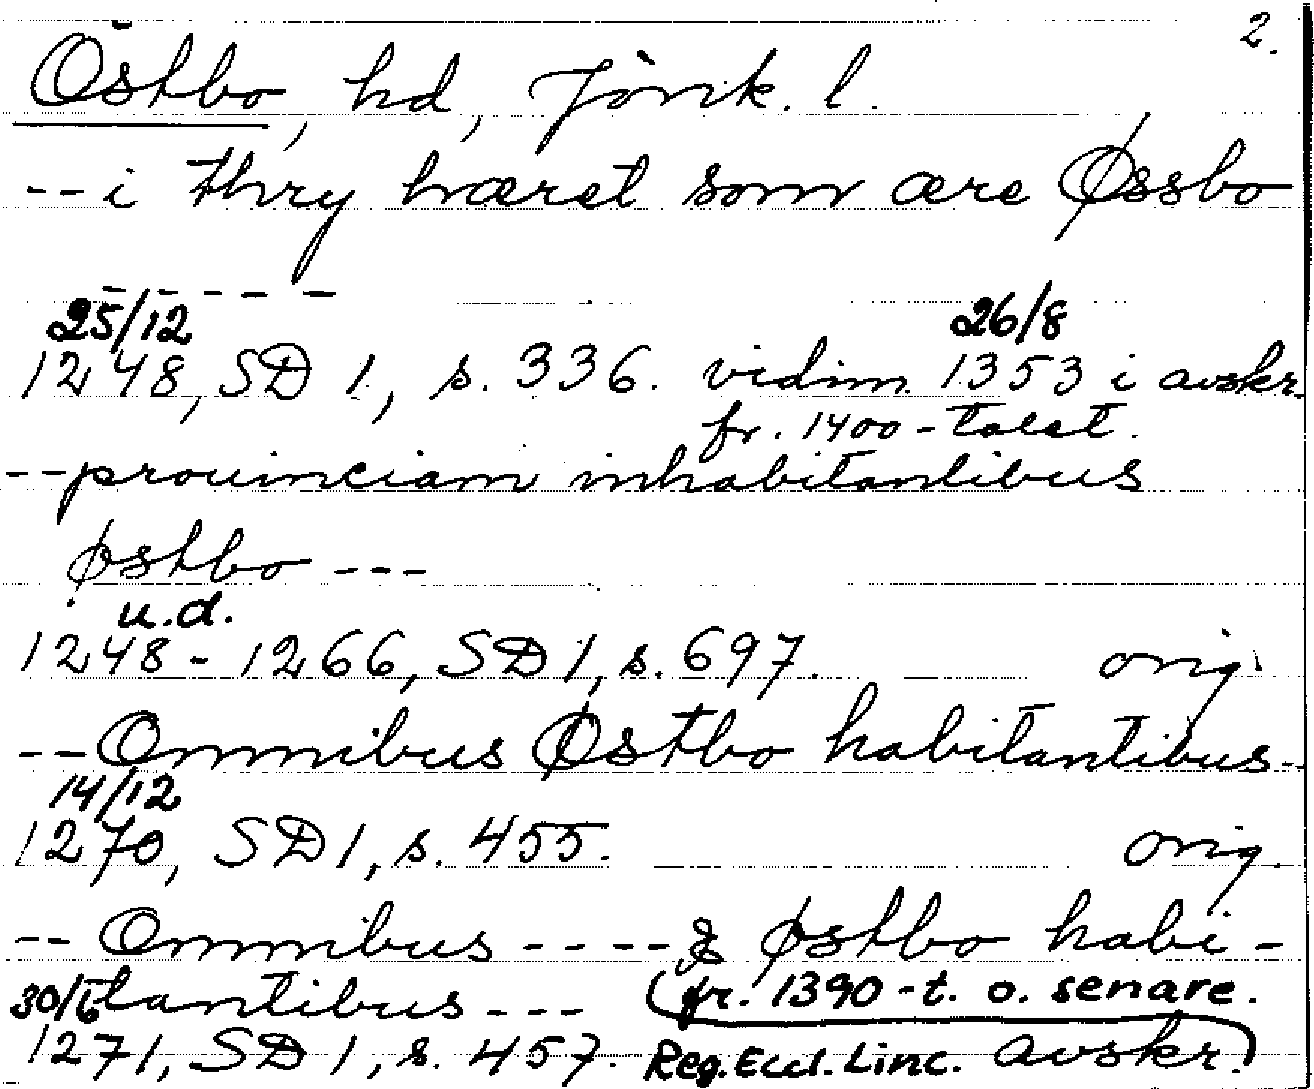 2.
Östbo, hd, Jönk. l.
-- i thry hæret som ære Øssbo
- - - - -
25/12 26/8
1248, SD 1, s. 336. vidim. 1353 i avskr.
fr. 1400-talet.
-- prouinciam inhabitantibus
østbo ---
u.d.
1248-1266, SD 1, s. 697. orig.
-- Omnibus Østbo habitantibus--
14/12
1270, SD 1, s. 455. orig.
-- Omnibus ---- & østbo habi-
30/6 tantibus --- (fr. 1390-t. o. senare.
1271, SD 1, s. 457. Reg. Eccl. Linc. avskr.)